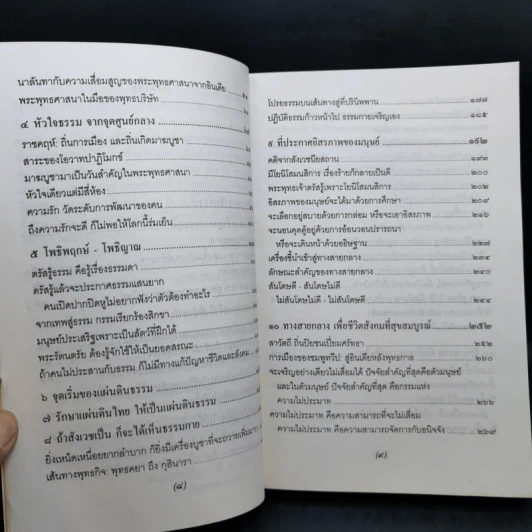 นาลันทากับความเสื่อมสูญของพระพุทธศาสนาจากอินเดีย
พระพุทธศาสนาในมือของพุทธบริษัท
๔ หัวใจธรรม จากจุดศูนย์กลาง
ราชคฤห์: ถิ่นการเมือง และถิ่นเกิดมาฆบูชา
สาระของโอวาทปาฏิโมกข์
มาฆบูชามาเป็นวันสำคัญในพระพุทธศาสนา
หัวใจเดียวแต่มีสี่ห้อง
ความรัก วัดระดับการพัฒนาของคน
ถึงความรักจะดี ก็ไม่พอให้โลกนี้ร่มเย็น
๕ โพธิพฤกษ์ - โพธิญาณ
ตรัสรู้ธรรม คือรู้เรื่องธรรมดา
ตรัสรู้แล้วจะประกาศธรรมแสนยาก
คนเปิดปากปิดหูไม่อยากฟังว่าตัวต้องทำอะไร
จากเทพสู่ธรรม กรรมเรียกร้องสิกขา
มนุษย์ประเสริฐเพราะเป็นสัตว์ที่ฝึกได้
พระรัตนตรัย ต้องรู้จักใช้ให้เป็นยอดสรณะ
ถ้าคนไม่ประสานกับธรรม ก็ไม่มีทางแก้ปัญหาชีวิตและสังคม
๖ จุดเริ่มของแผ่นดินธรรม
๗ รักษาแผ่นดินไทย ให้เป็นแผ่นดินธรรม
๘ ถ้าสังเวชเป็น ก็จะได้เห็นธรรมกาย
ยิ่งเหนื่อยยากลำบาก ก็ยิ่งมีเครื่องบูชาที่จะถวายเพิ่มมาก
เส้นทางพุทธกิจ: พุทธคยา ถึง กุสินารา
(๘)
โปรยธรรมบนเส้นทางสู่ที่ปรินิพพาน ๑๗๗
ปฏิบัติธรรมก้าวหน้าไป ธรรมกายเจริญเอง ๑๘๕
๙ ที่ประกาศอิสรภาพของมนุษย์ ๑๙๒
คติจากสังเวชนียสถาน ๑๙๓
มีโยนิโสมนสิการ เรื่องร้ายก็กลายเป็นดี ๒๐๐
พระพุทธเจ้าตรัสรู้เพราะโยนิโสมนสิการ ๒๐๒
อิสรภาพของมนุษย์จะได้มาด้วยการศึกษา ๒๐๙
จะเลือกอยู่สบายด้วยการกล่อม หรือจะเอาอิสรภาพ ๒๑๖
จะนอนคุดคู้อยู่ด้วยการอ้อนวอนปรารถนา
หรือจะเดินหน้าด้วยอธิษฐาน ๒๒๗
เครื่องชี้นำเข้าสู่ทางสายกลาง ๒๓๔
ลักษณะสำคัญของทางสายกลาง ๒๔๐
สันโดษดี - สันโดษไม่ดี
- ไม่สันโดษไม่ดี - ไม่สันโดษดี ๒๔๔
๑๐ ทางสายกลาง เพื่อชีวิตสังคมที่สุขสมบูรณ์ ๒๕๒
สาวัตถี ถิ่นปิยชนเปี่ยมศรัทธา ๒๕๒
การเมืองของชมพูทวีป: สู่อินเดียหลังพุทธกาล ๒๖๐
จะเจริญอย่างเดียวไม่เสื่อมได้ ปัจจัยสำคัญที่สุดคือตัวมนุษย์
และในตัวมนุษย์ ปัจจัยสำคัญที่สุด คือกรรมแห่ง
ความไม่ประมาท ๒๖๖
ความไม่ประมาท คือความสามารถที่จะไม่เสื่อม
ความไม่ประมาท คือความสามารถจัดการกับอนิจจัง ๒๖๙
(๙)